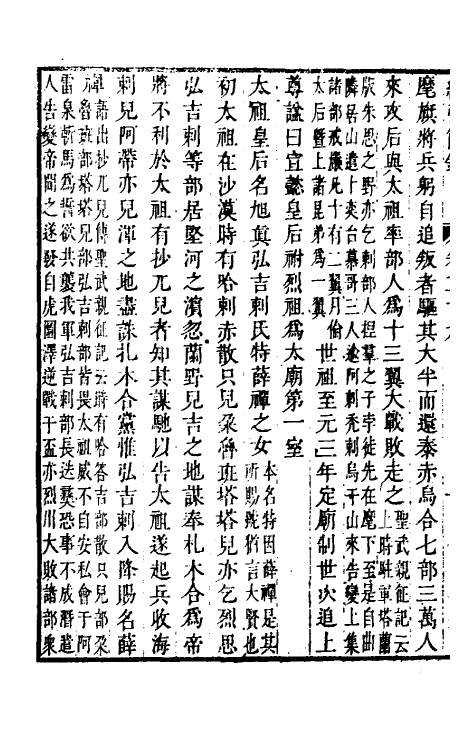 麾旗將兵躬自追叛者驅其大半而還泰赤烏合七部三萬人
來攻后與太祖率部人爲十三翼大戰敗走之
聖武親征記云
上時駐軍塔蘭
版朱思之野亦乞剌部人捏羣之子孛徒先在麾下至是自曲
隣居山遣卜欒台慕哥三人逾阿剌禿剌烏于山來告變上集
諸部戒嚴凡十有二翼月倫
太后暨上諸昆弟爲一翼
世祖至元三年定廟制世次追上
尊諡曰宣懿皇后祔烈祖爲太廟第一室
太祖皇后名旭眞弘吉剌氏特薛禪之女
本名特因薛禪是其
所賜號猶言大賢也
初太祖在沙漠時有哈剌赤散只兒朶魯班塔塔兒亦乞烈思
弘吉剌等部居堅河之濵忽蘭野兒吉之地謀奉札木合爲帝
將不利於太祖有抄兀兒者知其謀馳以告太祖遂起兵收海
剌兒阿帶亦兒渾之地盡誅札木合黨惟弘吉剌入降賜名薛
禪語出抄兀兒傳聖武親征記云時有哈答吉部散只兒部朶
魯班部塔塔兒部弘吉剌部皆畏太祖威不自安私會于阿
雷泉斬馬爲誓欲共襲我軍弘吉剌部長迭夷恐事不成潛遣
人告變帝聞之遂發自虎圖澤逆戰于盃亦烈川大敗諸部衆